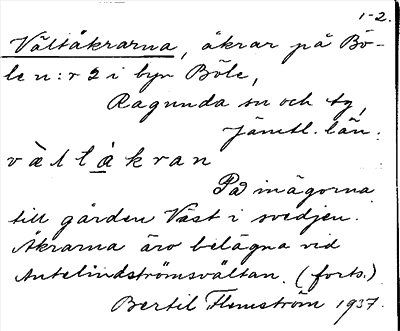 1-2.
Vältåkrarna, åkrar på Bö-
le n:r 2 i byn Böle,
Ragunda sn och tg,
Jämtl. län.
vàltåkran
På inägorna
till gården Väst i svedjen.
Åkrarna äro belägna vid
Antelindströmsvältan. (forts.)
Bertil Flemström 1937.